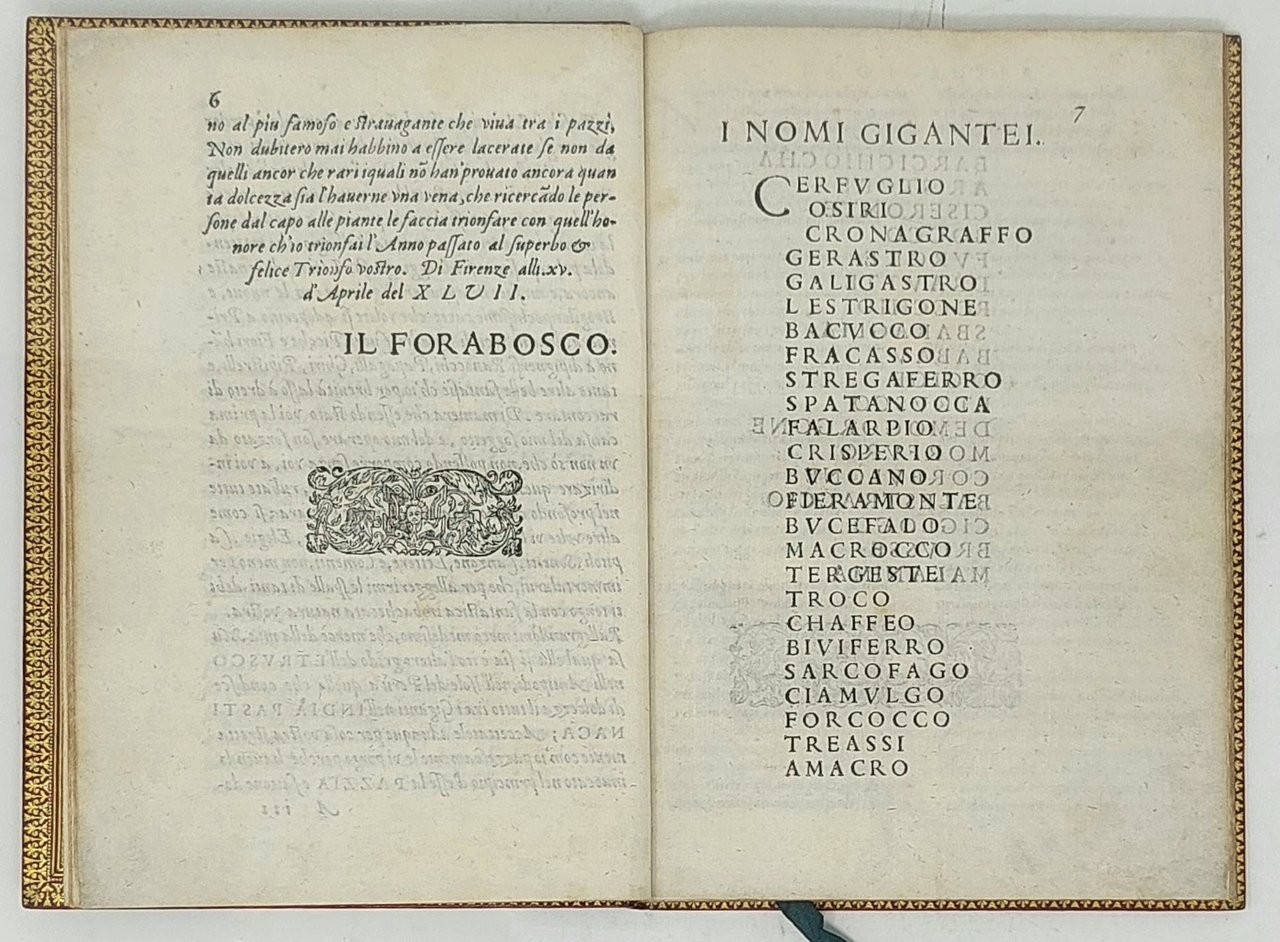 6
no al più famoso e strauagante che viua tra i pazzi,
Non dubitero mai habbino a essere lacerate se non da
quelli ancor che rari iquali nõ han' prouato ancora quan
ta dolcezza sia l'hauerne vna vena, che ricercãdo le per-
sone dal capo alle piante le faccia trionfare con quell'ho-
nore ch'io trionfai l'Anno passato al superbo &
felice Trionfo vostro. Di Firenze alli. xv.
d'Aprile del XLVII.
IL FORABOSCO.
7
I NOMI GIGANTEI.
CERFVGLIO
OSIRI
CRONAGRAFFO
GERASTRO
GALIGASTRO
LESTRIGONE
BACVCCO
FRACASSO
STREGAFERRO
SPATANOCCA
FALARPIO
CRISPERIO
BVCCANO
FIERAMONTE
BVCEFALO
MACROCCO
TERGESTE
TROCO
CHAFFEO
BIVIFERRO
SARCOFAGO
CIAMVLGO
FORCOCCO
TREASSI
AMACRO